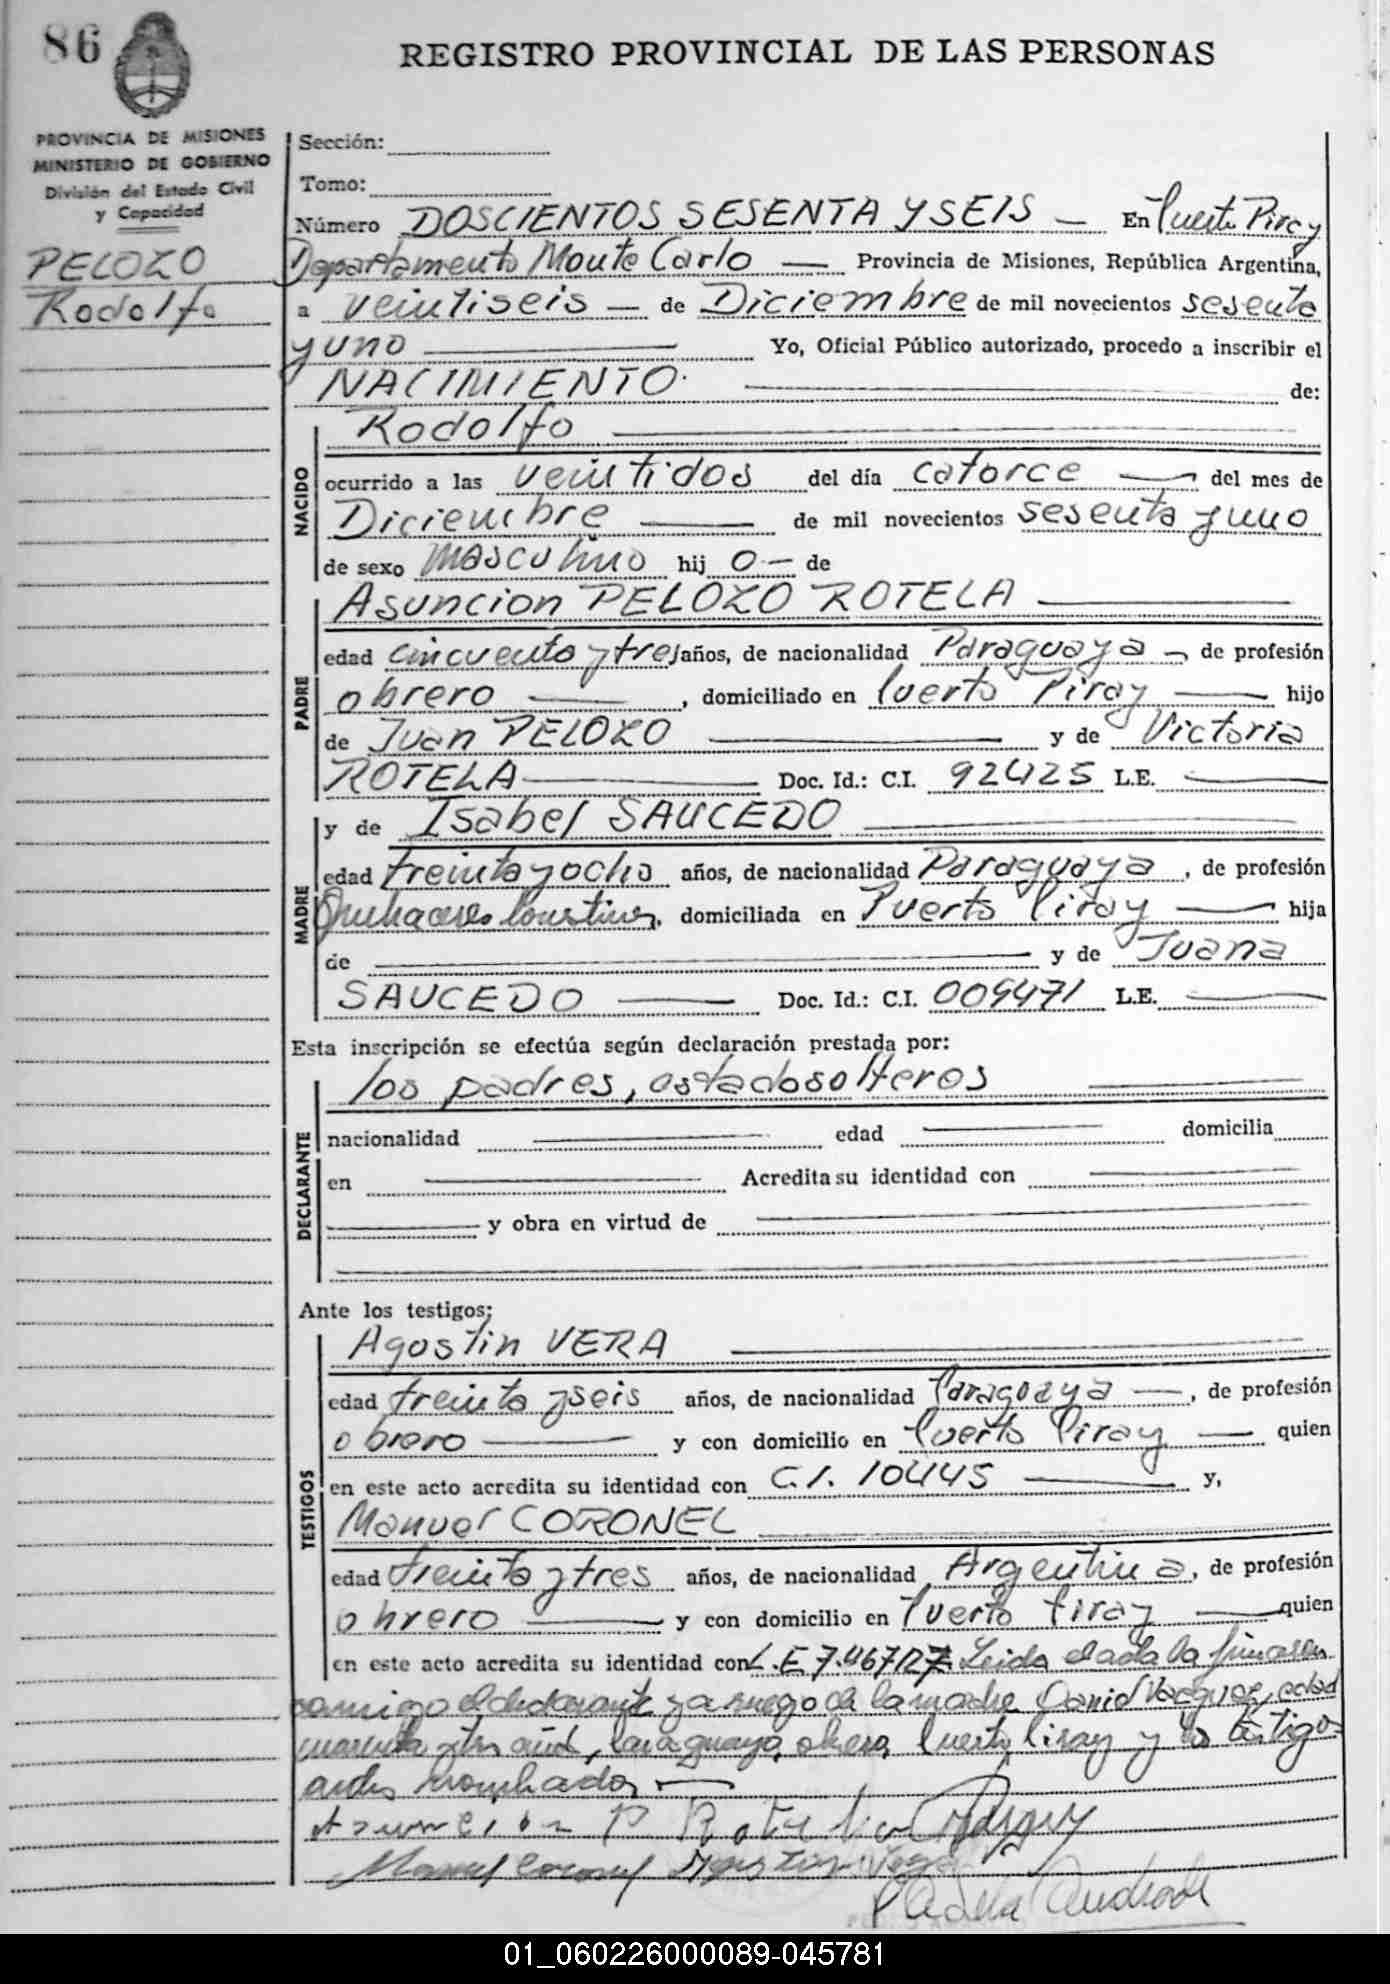 86
REGISTRO PROVINCIAL DE LAS PERSONAS
PROVINCIA DE MISIONES
MINISTERIO DE GOBIERNO
División del Estado Civil
y Capacidad
PELOZO
Rodolfo
Sección:
Tomo:
Número DOSCIENTOS SESENTA Y SEIS — En Puerto Piray
Departamento Monte Carlo — Provincia de Misiones, República Argentina,
a veintiseis — de Diciembre de mil novecientos sesenta
y uno — Yo, Oficial Público autorizado, procedo a inscribir el
NACIMIENTO. — de:
NACIDO
Rodolfo —
ocurrido a las veintidos del día catorce — del mes de
Diciembre — de mil novecientos sesenta y uno
de sexo masculino hij o — de
PADRE
Asuncion PELOZO ROTELA —
edad cincuenta y tres años, de nacionalidad Paraguaya — de profesión
obrero —, domiciliado en Puerto Piray — hijo
de Juan PELOZO — y de Victoria
ROTELA — Doc. Id.: C.I. 92425 L.E. —
MADRE
y de Isabel SAUCEDO —
edad treinta y ocho años, de nacionalidad Paraguaya, de profesión
Quehaceres, domiciliada en Puerto Piray — hija
de — y de Juana
SAUCEDO — Doc. Id.: C.I. 009471 L.E. —
Esta inscripción se efectúa según declaración prestada por:
DECLARANTE
los padres, estado solteros —
nacionalidad — edad — domicilia
en — Acredita su identidad con —
— y obra en virtud de —
Ante los testigos:
TESTIGOS
Agostin VERA —
edad treinta y seis años, de nacionalidad Paraguaya —, de profesión
obrero — y con domicilio en Puerto Piray — quien
en este acto acredita su identidad con C.I. 10445 — y,
Manuel CORONEL
edad treinta y tres años, de nacionalidad Argentina, de profesión
obrero — y con domicilio en Puerto Piray — quien
en este acto acredita su identidad con L.E 7.467.127 Leida el acta la firmaron
conmigo el declarante y a ruego de la madre Daniel Vazquez, edad
cuarenta y tres años, Paraguaya, obrero, Puerto Piray y los testigos
antes nombrados —
Asuncion P Rotela
Manuel Coronel Agostin Vera
01_060226000089-045781